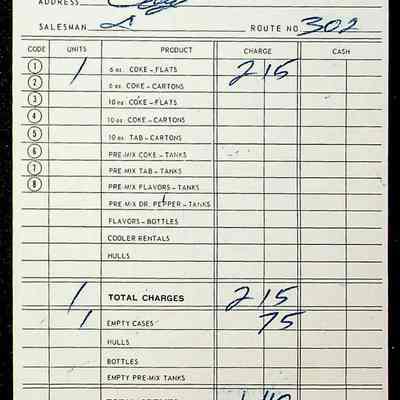 ADDRESS
SALESMAN ROUTE NO 302
CODE UNITS PRODUCT CHARGE CASH
1 1 6 oz. COKE – FLATS 2 15
2 6 oz. COKE – CARTONS
3 10 oz. COKE – FLATS
4 10 oz. COKE – CARTONS
5 10 oz. TAB – CARTONS
6 PRE-MIX COKE – TANKS
7 PRE-MIX TAB – TANKS
8 PRE-MIX FLAVORS – TANKS
PRE-MIX DR. PEPPER – TANKS
FLAVORS – BOTTLES
COOLER RENTALS
HULLS
1 TOTAL CHARGES 2 15
1 EMPTY CASES 75
HULLS
BOTTLES
EMPTY PRE-MIX TANKS